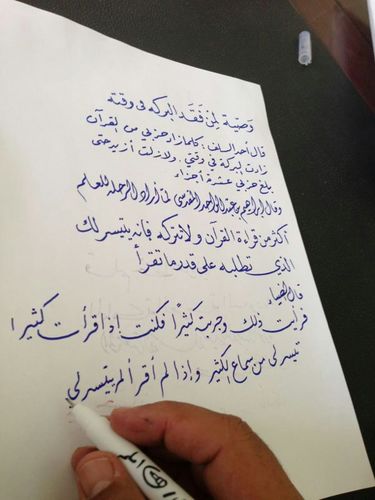 وَصيّة لِمن فَقَد البركه في وقته
قال أحد السلف : كلما زاد حزبي من القرآن
زادت البركة في وقتي . ولا زلت أزيد حتى
بلغ حزبي عشرة أجزاء
وقال إبراهيم بن عبد الواحد المقدسي لمن أراد الرحلة للعلم
أكثر من قراءة القرآن ولا تتركه فإنه يتيسر لك
الذي تطلبه على قدر ما تقرأ
قال الضياء
فرأيت ذلك وجربته كثيرًا فكنت إذا قرأت كثيرا
تيسر لي من سماع الكثير وإذا لم أقرأ لم يتيسر لي